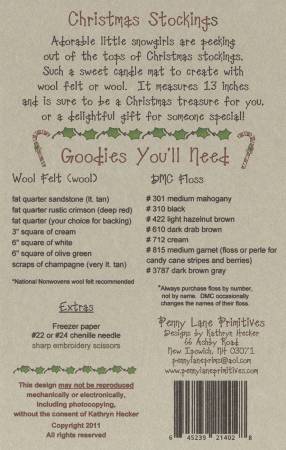 Christmas Stockings
Adorable little snowgirls are peeking
out of the tops of Christmas stockings.
Such a sweet candle mat to create with
wool felt or wool. It measures 13 inches
and is sure to be a Christmas treasure for you,
or a delightful gift for someone special!
Goodies You'll Need
Wool Felt (wool)
fat quarter sandstone (lt. tan)
fat quarter rustic crimson (deep red)
fat quarter (your choice for backing)
3" square of cream
6" square of white
6" square of olive green
scraps of champagne (very lt. tan)
*National Nonwovens wool felt recommended
DMC Floss
# 301 medium mahogany
# 310 black
# 422 light hazelnut brown
# 610 dark drab brown
# 712 cream
# 815 medium garnet (floss or perle for
candy cane stripes and berries)
# 3787 dark brown gray
*Always purchase floss by number,
not by name. DMC occasionally
changes the names of their floss.
Extras
Freezer paper
#22 or #24 chenille needle
sharp embroidery scissors
This design may not be reproduced
mechanically or electronically,
including photocopying,
without the consent of Kathryn Hecker
Copyright 2011
All rights reserved
Penny Lane Primitives
Designs by Kathryn Hecker
66 Ashby Road
New Ipswich, NH 03071
pennylaneprims@aol.com
www.pennylaneprimitives.com
6 45239 21402 8